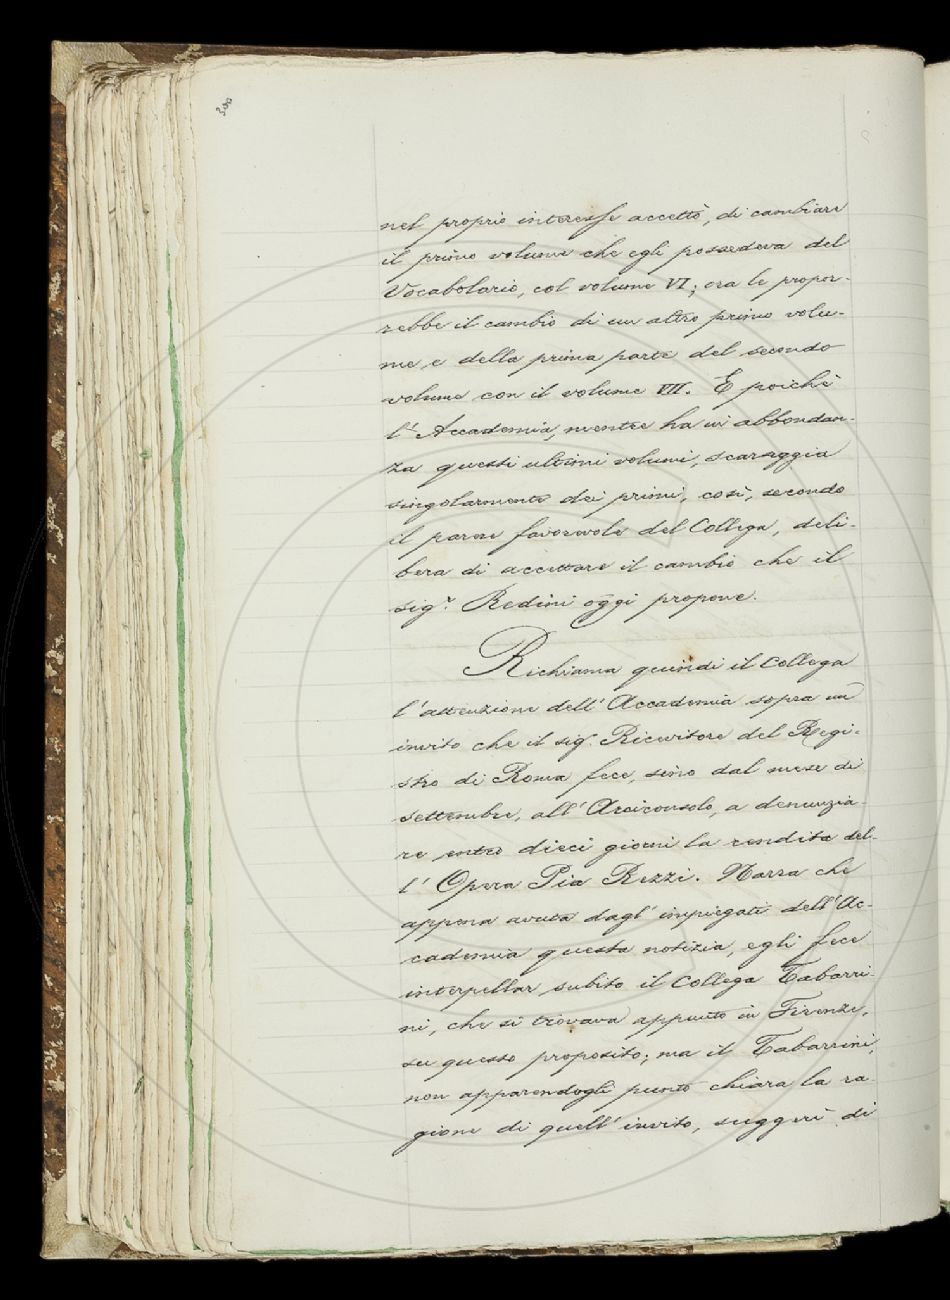 300
nel proprio interesse accettò, di cambiare
il primo volume che egli possedeva del
Vocabolario, col volume VI; ora le propor-
rebbe il cambio di un altro primo volu-
me, e della prima parte del secondo
volume con il volume VII. E poichè
l'Accademia, mentre ha in abbondan-
za questi ultimi volumi, scarseggia
singolarmente dei primi, così, secondo
il parere favorevole del Collega, deli-
bera di accettare il cambio che il
sig.r Redini oggi propone.
Richiama quindi il Collega
l'attenzione dell'Accademia sopra un
invito che il sig. Ricevitore del Regi-
stro di Roma fece, sino dal mese di
settembre, all'Arciconsolo, a denunzia
re entro dieci giorni la rendita del-
l'Opera Pia Rezzi. Narra che
appena avuta dagl'impiegati dell'Ac-
cademia questa notizia, egli fece
interpellar subito il Collega Tabarri-
ni, che si trovava appunto in Firenze,
su questo proposito; ma il Tabarrini,
non apparendogli punto chiara la ra-
gione di quell'invito, suggerì di